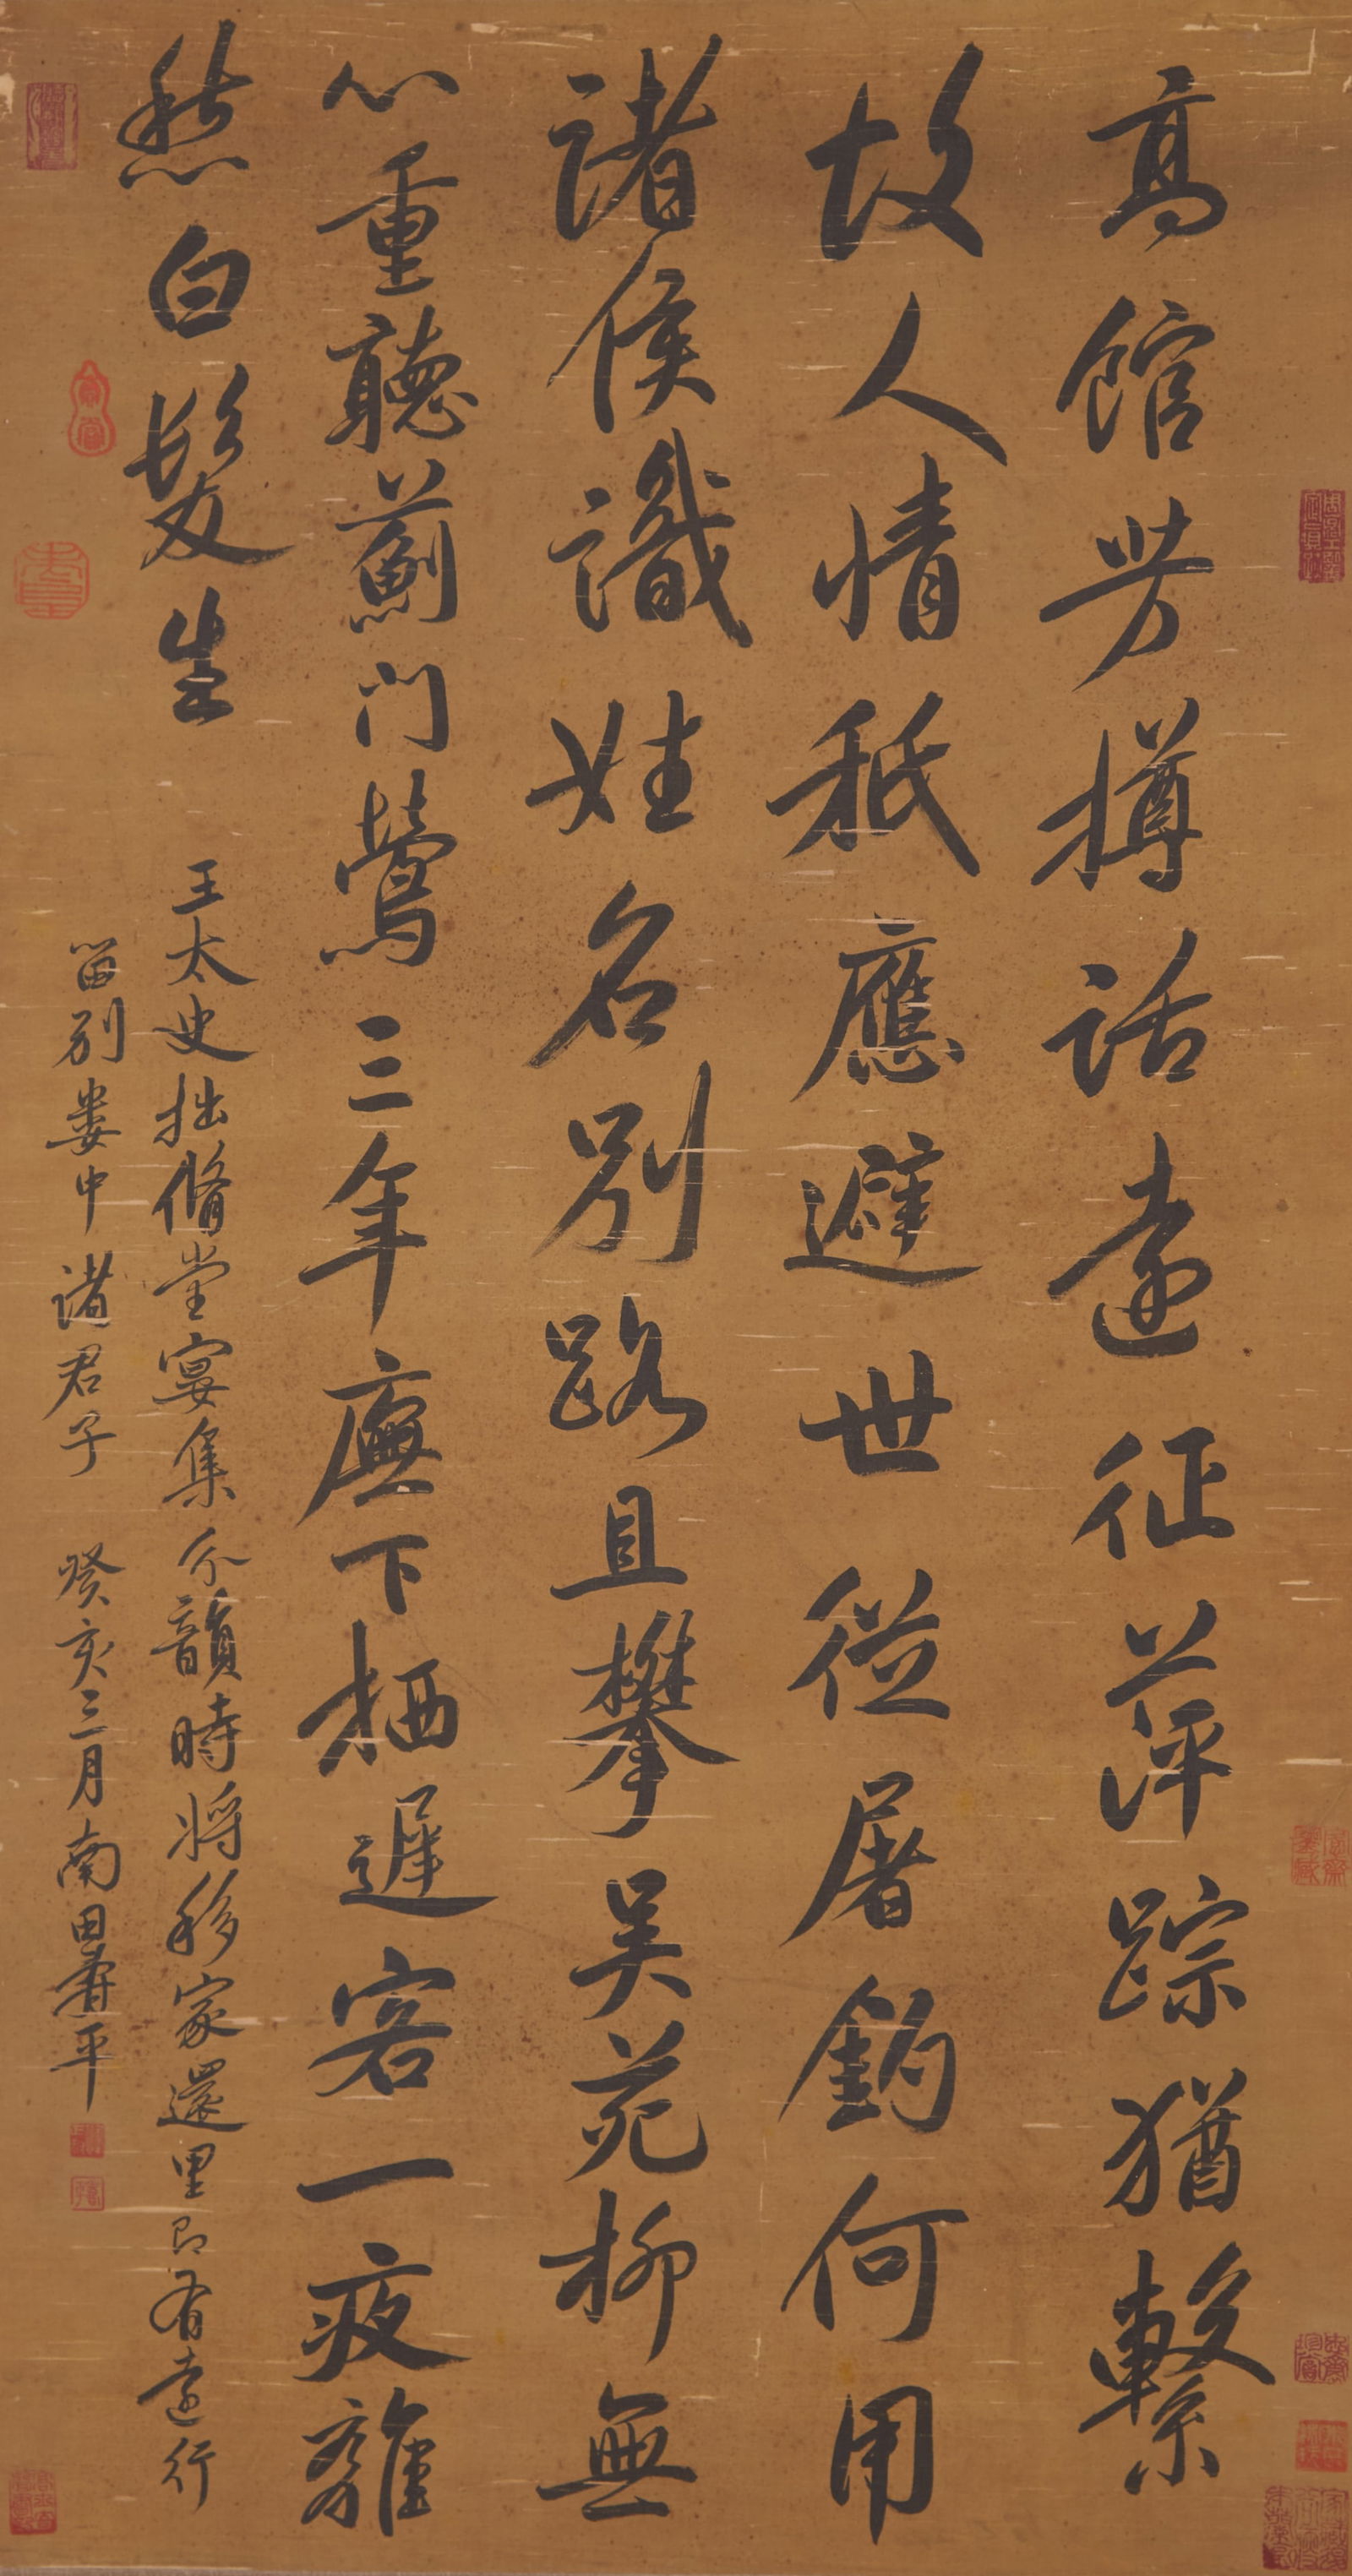 高館芳樽話遠征萍踪猶繫
故人情秖應避世從屠釣何用
諸侯識姓名別路且攀吴苑柳無
心重聽薊門鶯三年廡下栖遲客一夜離
愁白髮生
王太史拙脩堂宴集分韻時將移家還里即有遠行
留別婁中諸君子 癸亥三月南田壽平